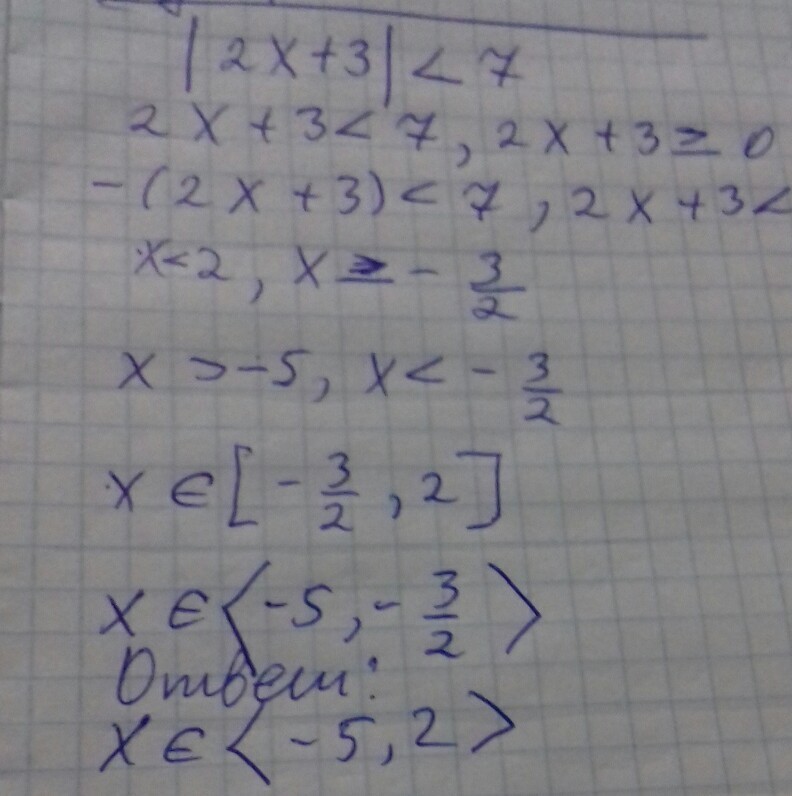 |2x+3|<7
2x+3<7, 2x+3≥0
-(2x+3)<7, 2x+3<
x<2, x≥-3/2
x>-5, x<-3/2
x∈[-3/2, 2]
x∈⟨-5,-3/2⟩
Ответ:
x∈⟨-5,2⟩